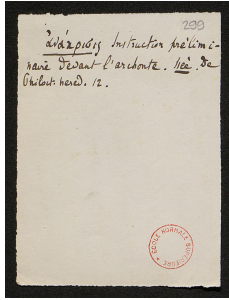 299
ἀνάκρισις Instruction prélimi-
naire devant l'archonte. Isée. De
Philoct. hered. 12.
ÉCOLE NORMALE SUPÉRIEURE